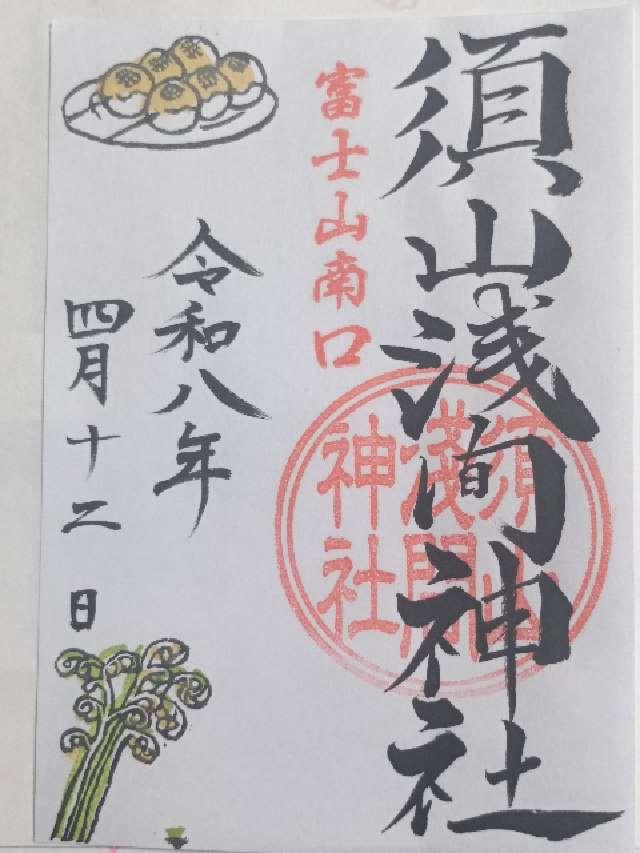 須山浅间神社
富士山南口
須山
浅間
神社
令和八年
四月十二日